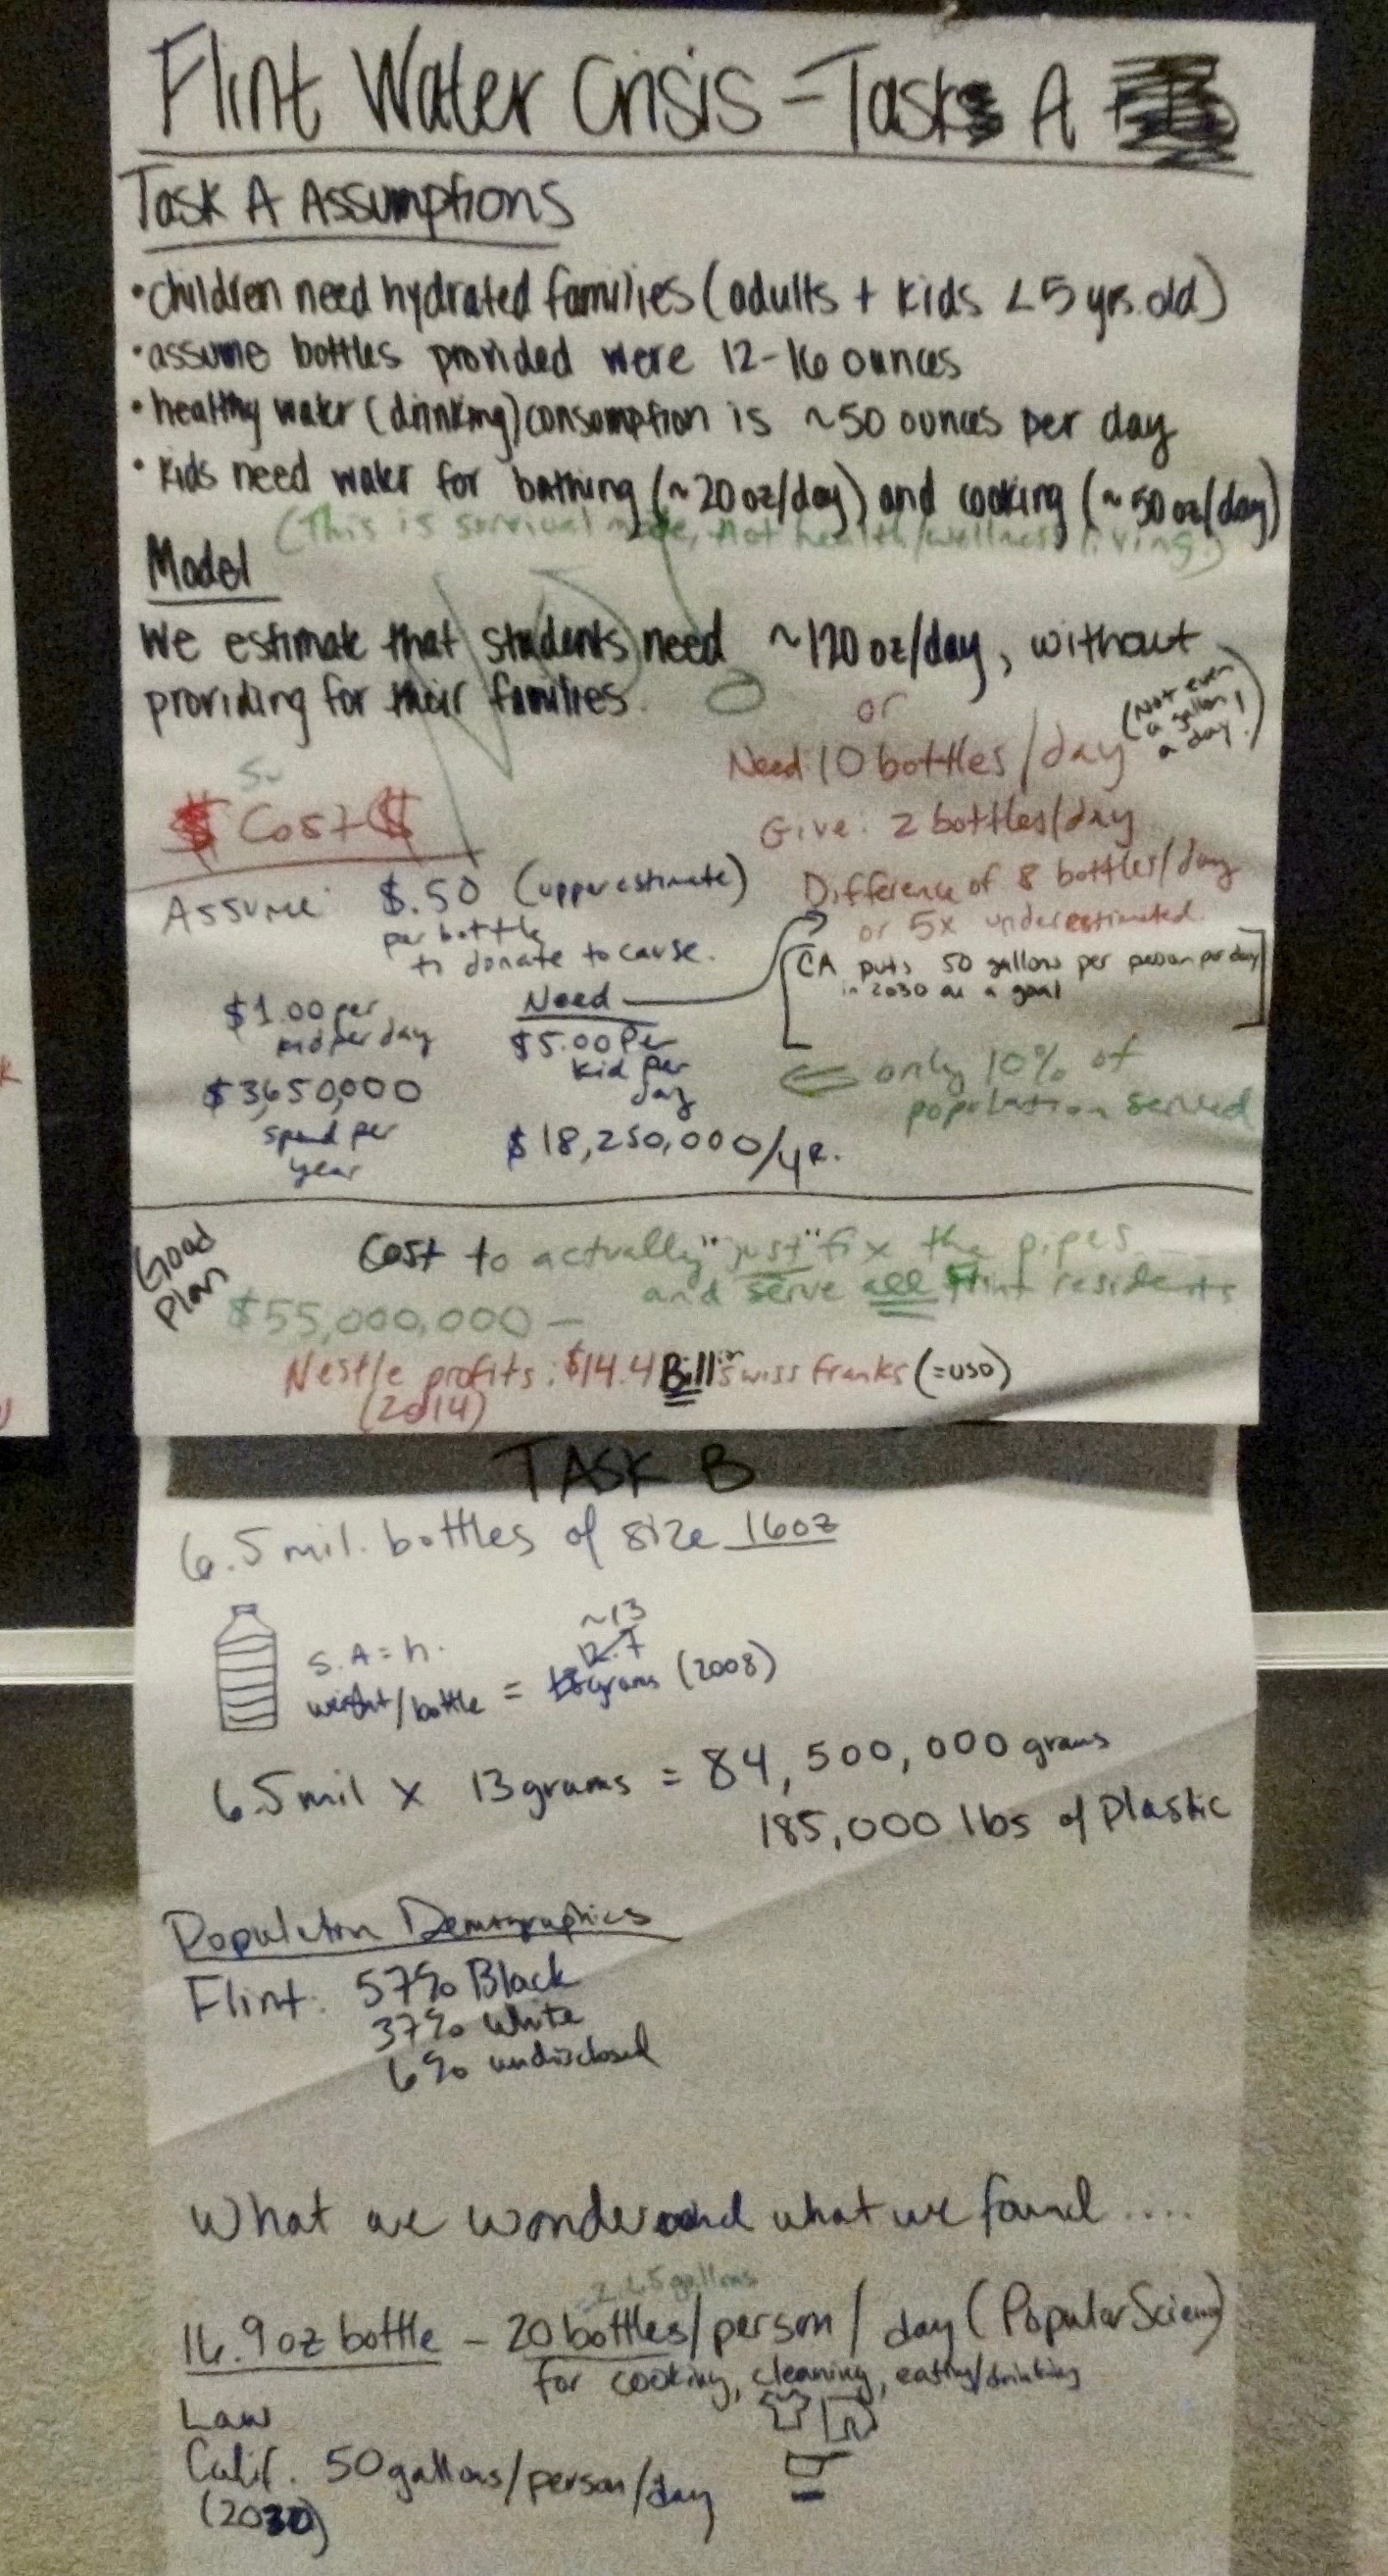 Flint Water Crisis - Tasks A
Task A Assumptions
• children need hydrated families (adults + kids < 5 yrs. old)
• assume bottles provided were 12-16 ounces
• healthy water (drinking) consumption is ~50 ounces per day
• kids need water for bathing (~20 oz/day) and cooking (~50 oz/day)
(This is survival mode, not health/wellness living.)
Model
We estimate that students need ~120 oz/day, without
providing for their families.
or
(Not even
a gallon
a day!)
Need 10 bottles/day
Give: 2 bottles/day
Difference of 8 bottles/day
or 5x underestimated.
$ Cost $
Assume: $.50 (upper estimate)
per bottle
to donate to cause.
CA puts 50 gallons per person per day
in 2030 as a goal
$1.00 per
kid per day
$3,650,000
spend per
year
Need
$5.00 per
kid per
day
$18,250,000/yr.
⇐ only 10% of
population served
Good
Plan
Cost to actually "just" fix the pipes
and serve all Flint residents
$55,000,000 -
Nestle profits: $14.4 Billion Swiss Franks (=USD)
(2014)
TASK B
6.5 mil. bottles of size 16oz
S.A = h.
~13
12.7
weight/bottle = grams (2008)
6.5 mil x 13 grams = 84,500,000 grams
185,000 lbs of plastic
Population Demographics
Flint: 57% Black
37% White
6% undisclosed
What we wonder and what we found ....
gallons
16.9 oz bottle - 20 bottles/person/day (Popular Science)
for cooking, cleaning, eating/drinking
Law
Calif. 50 gallons/person/day
(2030)